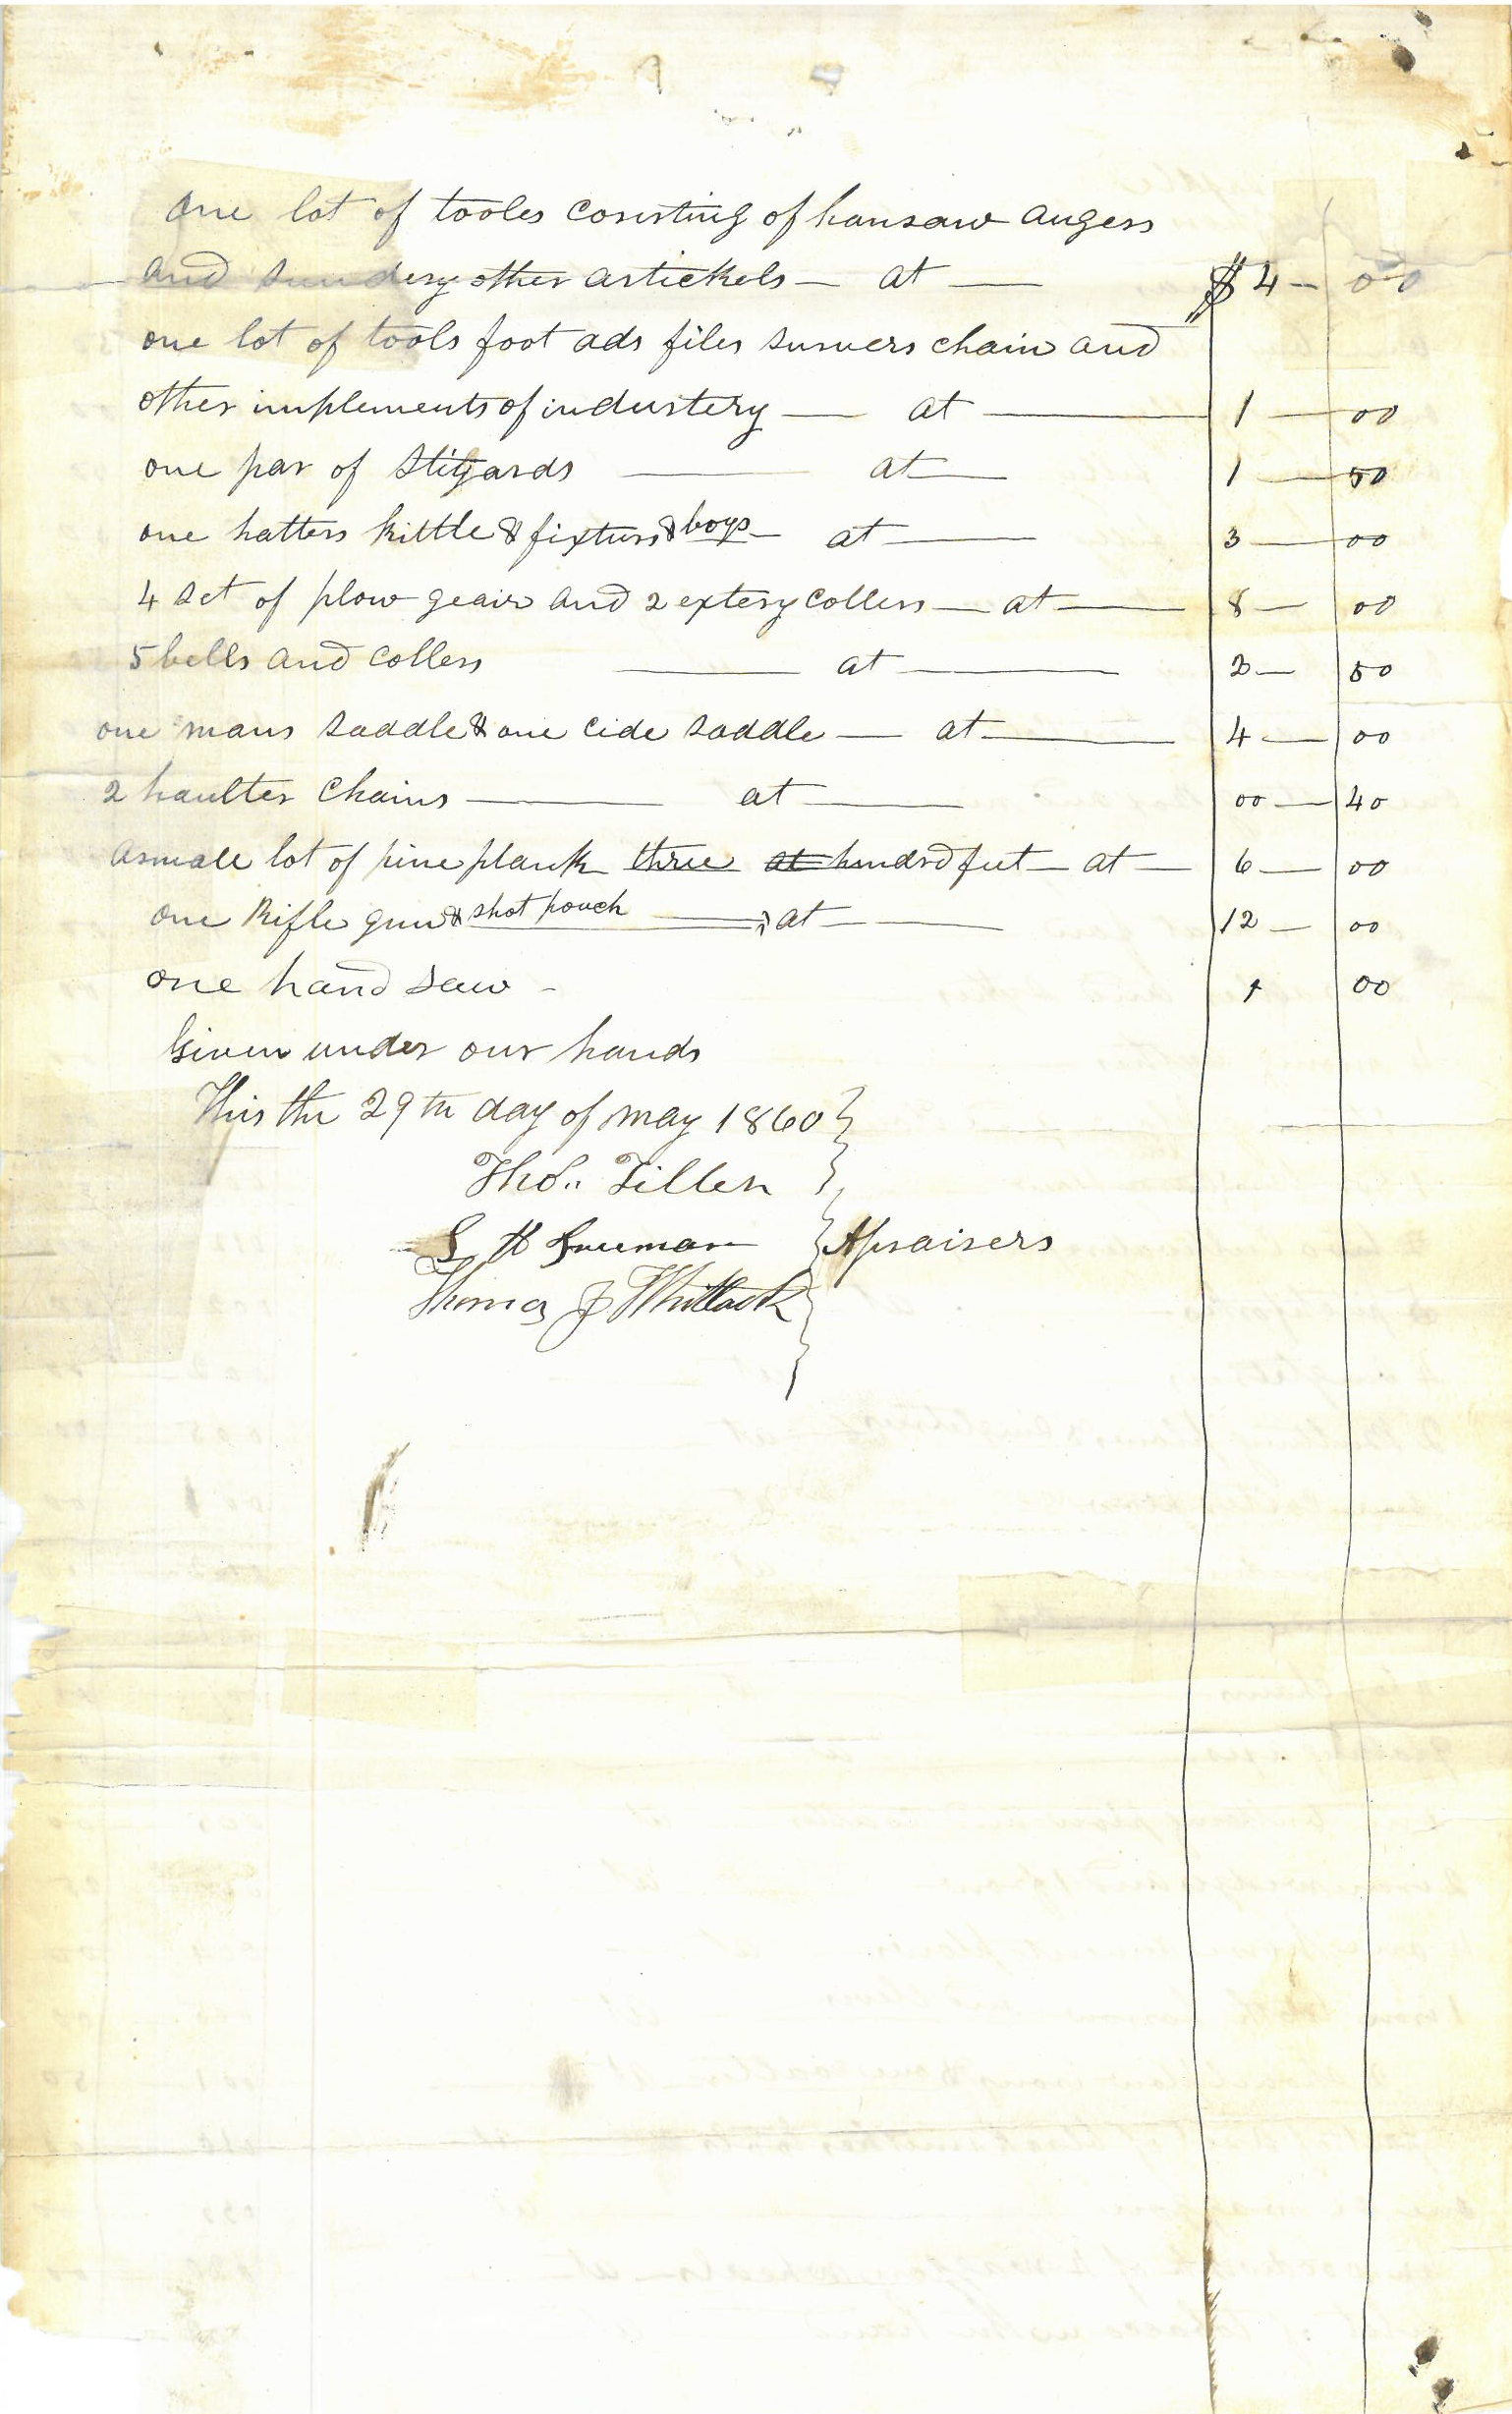 One lot of tooles consisting of hansaw augers
and sundery other artickels — at — $4 — 00
one lot of tools foot ads files survers chain and
other implements of industery — at — 1 — 00
one par of Stilyards — at — 1 — 50
one hatters kittle & fixturs & boys — at — 3 — 00
4 set of plow geair and 2 extery collers — at — 8 — 00
5 bells and collers — at — 2 — 50
one mans saddle & one cide saddle — at — 4 — 00
2 haulter chains — at — 00 — 40
a smale lot of pine plank three at hundrd feet — at — 6 — 00
one Rifle gun & shot pouch — at — 12 — 00
one hand saw - 1 00
Given under our hands
This the 29th day of may 1860
Thos. Tiller
S H Freeman Apraisers
Thomas J Whitlock